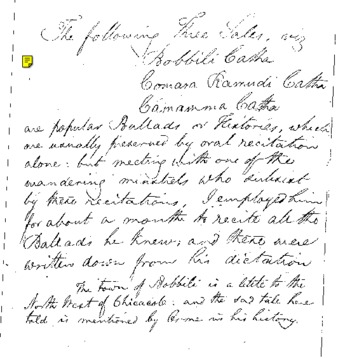 The following Three Tales, viz
Bobbili Catha
Comara Ramudi Catha
Camamma Catha
are popular Ballads or Histories, which
are usually preserved by oral recitation
alone: but meeting with one of the
wandering minstrels who subsist
by these recitations, I employed him
for about a month to recite all the
Ballads he knew; and these were
written down from his dictation
The town of Bobbili is a little to the
North West of Chicacole: and the sad tale here
told is mentioned by Orme in his history.